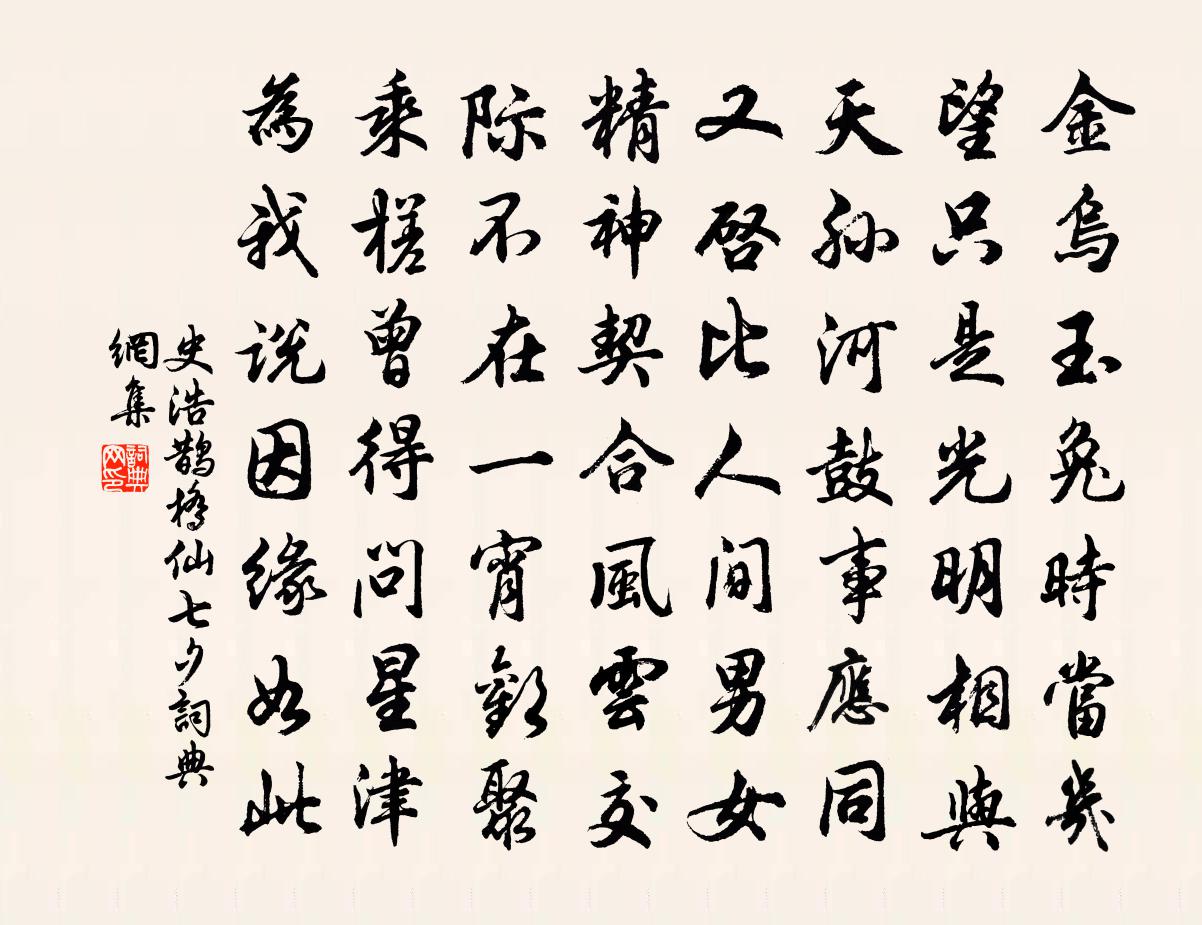 金烏玉兔時當幾
望只是光明相與
天孫河鼓事應同
又啓比人間男女
精神契合風雲交
际不在一宵歡聚
乘槎曾得問星津
為我說因緣如此
史浩鵲橋仙七夕詞典
網集
詞典
网印